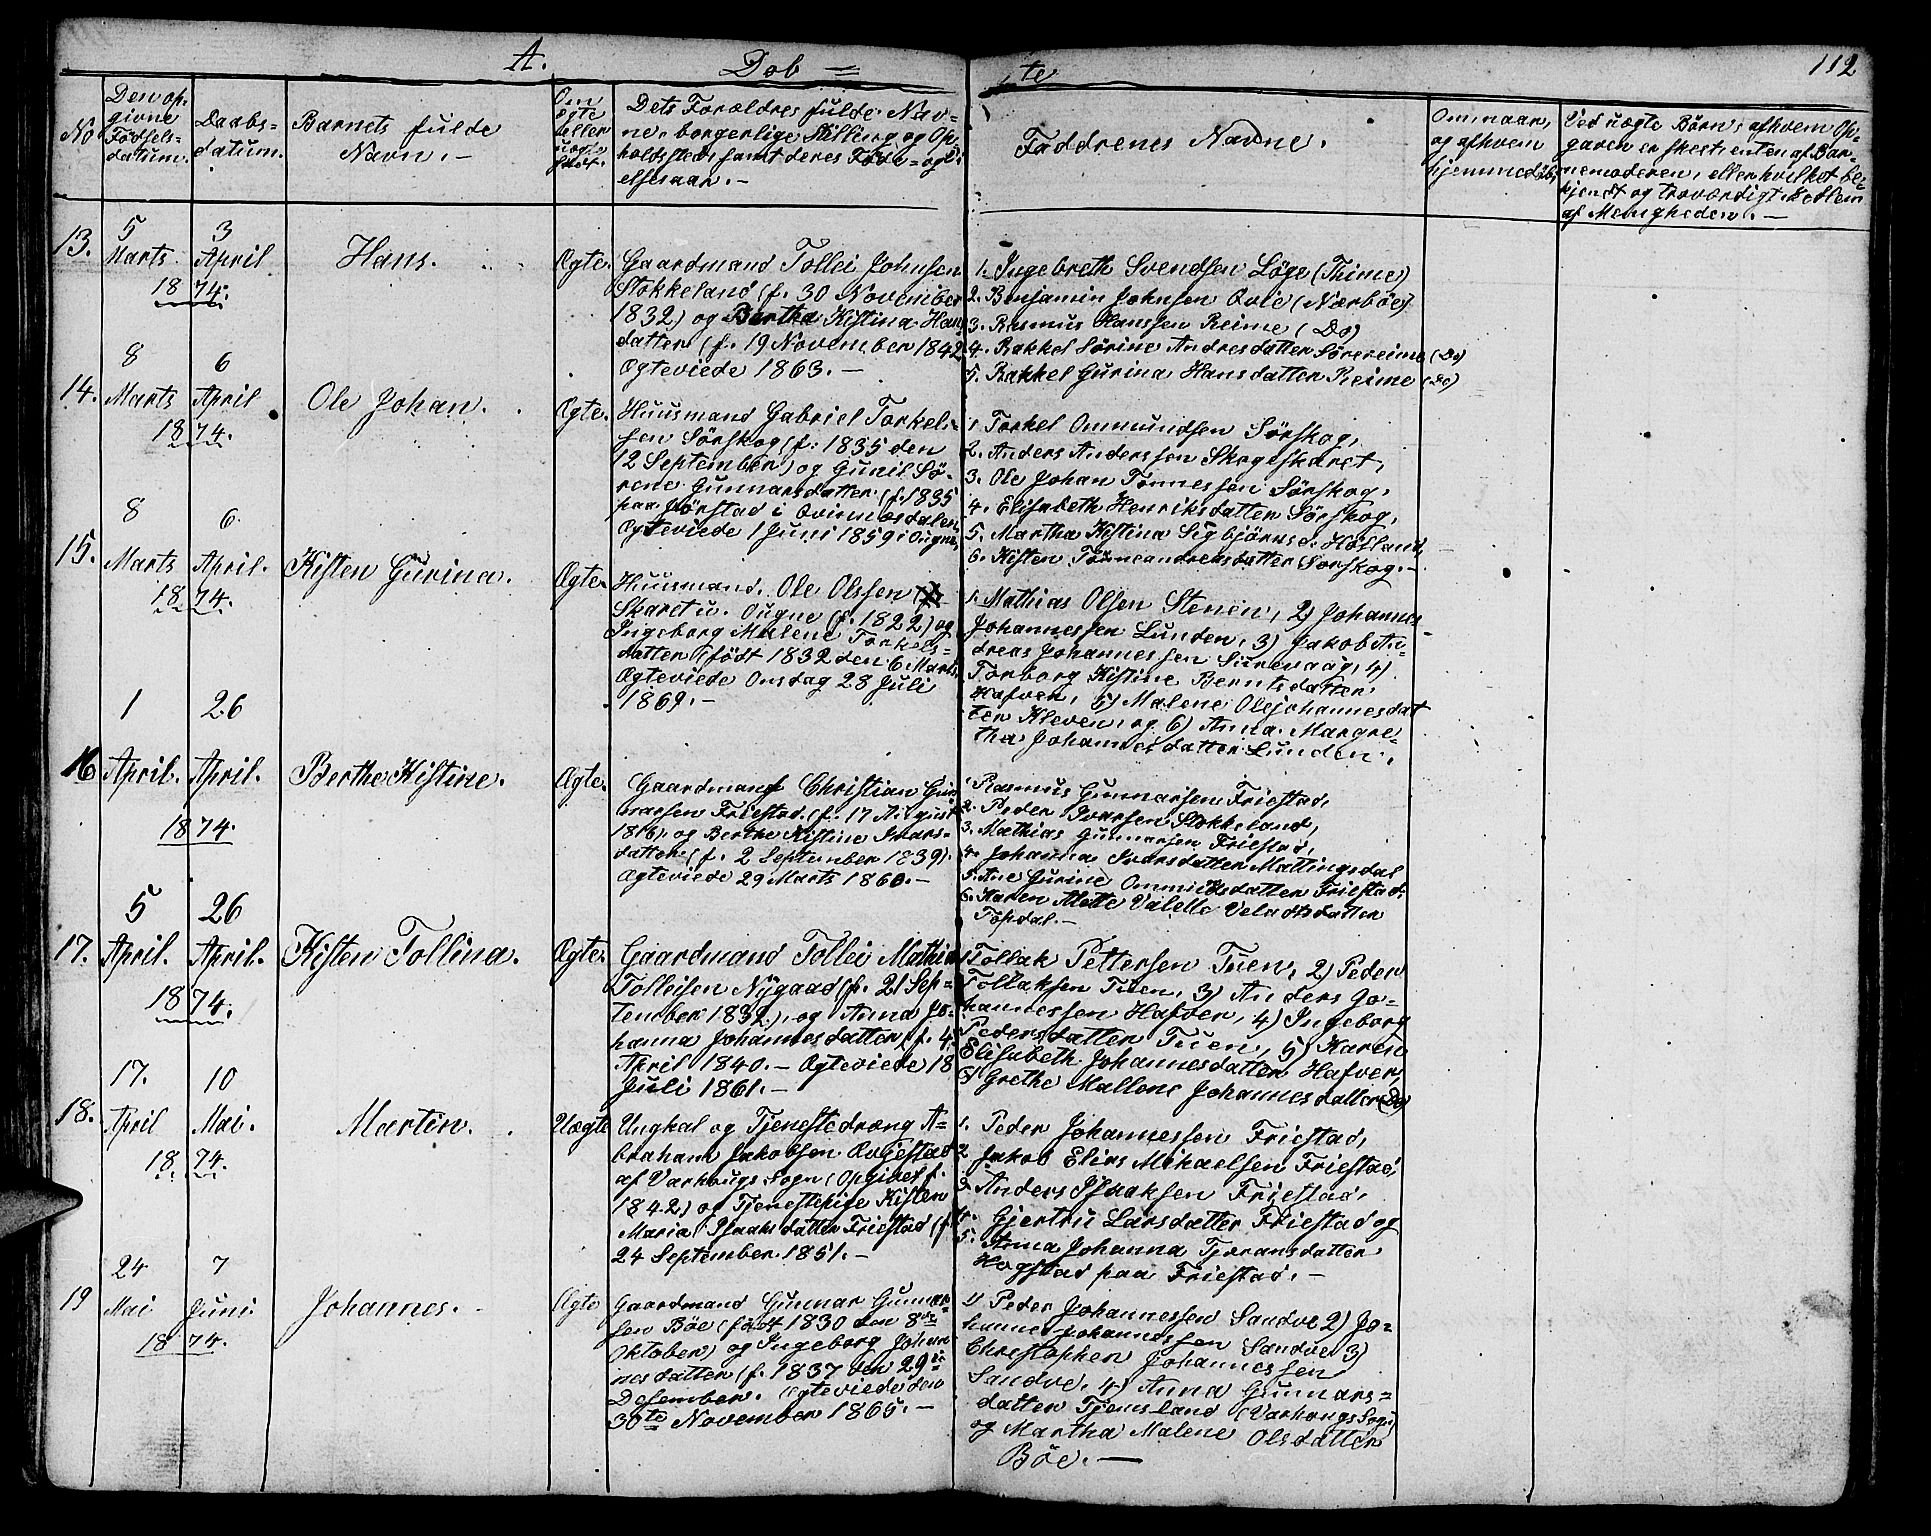 A. Døb = te 112
No
Den op-
givne
Fødsels-
datum.
Daabs-
datum.
Barnets fulde
Navn. –
Om
ægte
eller
uægte
født.
Dets Forældres fulde Nav-
ne, borgerlige Stilling og Op-
holdssted, samt deres Føde- og
elsesaar. –
Faddrenes Navne.
Om naar,
og af hvem
hjemmedøbt
Ved uægte Børn, af hvem Op-
gaven er skeet, enten af Bar-
nemoderen, eller hvilket be-
kjendt og troværdigt Medlem
af Menigheden. –
13.
5
Marts
3
April
1874.
Hans.
Ægte.
Gaardmand Tollei Johnsen
Stokkeland (f. 30 November
1832) og Bertha Kistina Hans
datter (f. 19 November 1842
Ægteviede 1863. –
1. Ingebreth Svendsen Løge (Thime)
2. Benjamin Johnsen Qvie (Nærbøe)
3. Rasmus Hanssen Reime (Do)
4. Rakkel Sørine Andresdatter Sørereime (Do)
5. Rakkel Gurina Hansdatter Reime (Do)
14.
8
Marts
6
April
1874.
Ole Johan.
Ægte.
Huusmand Gabriel Torkel-
sen Sørskog (f: 1835 den
12 September) og Gunil Sø-
rene Gunnarsdatter (f. 1835
paa Jørstad i Qvinnesdalen,
Ægteviede 1 Juni 1859 i Ougne,
1. Torkel Ommundsen Sørskog,
2. Anders Anderssen Skogeskaret,
3. Ole Johan Tønnessen Sørskog,
4. Elisabeth Henriksdatter Sørskog,
5. Martha Kistina Sigbjørnsd. Høsland,
6. Kisten Tønneandreasdatter Sørskog. –
15.
8
Marts
6.
April.
1874.
Kisten Gurina.
Ægte.
Huusmand. Ole Olssen
Skaret u. Ougne (f. 1822) og
Ingeborg Malene Torkels-
datter (født 1832 den 6 Marts
Ægteviede Onsdag 28 Juli
1869. –
1. Mathias Olsen Stenen, 2) Johannes
Johannessen Lunden, 3) Jakob An-
dreas Johannessen Sirevaag, 4)
Torborg Kistine Berntsdatter
Hafver, 5) Malene Olejohannesdat
ter Kleven, og 6) Anna Margre-
tha Johannesdatter Lunden.
16
1
April.
26
April.
1874.
Berthe Kistine.
Ægte.
Gaardmand Christian Gun
narsen Friestad (f. 17 August
1816) og Berthe Kistine Ivars-
datter (f. 2 September 1839).
Ægteviede 29 Marts 1860. –
1 Rasmus Gunnarsen Friestad,
2. Peder Ivarsen Stokkeland,
3. Mathias Gunnarsen Friestad,
4. Johanna Ivarsdatter Mattingsdal
5. Ane Gurine Ommundsdatter Friestad,
6. Karen Mette Valette
Topdal. –
17.
5
April.
26
April.
1874.
Kisten Tollina.
Ægte.
Gaardmand Tollei Mathia
Tolleisen Nygaad (f. 21 Sep-
tember 1832), og Anna Jo-
hanna Johannesdatter, f. 4
April 1840. – Ægteviede 18
Juli 1861. –
1 Tollak Pettersen Tuen, 2) Peder
Tollaksen Tuen, 3) Anders Jo-
hannessen Hafver, 4) Ingeborg
Pedersdatter Tuen, 5) Karen
Elisabeth Johannesdatter Hafver,
6) Grethe Mallene Johannesdatter (Do)
18.
17.
April
10
Mai.
1874.
Martin.
Uægte
Ungkal og Tjenestedræng A-
braham Jakobsen Qvijestad
af Varhougs Sogn (Opgivet f.
1842) og Tjenestepige Kisten
Maria Isaaksdatter Friestad (f.
24 September 1851. –
1. Peder Johannessen Friestad,
2 Jakob Elias Mikaelsen Friestad,
3. Anders Isaaksen Friestad,
4. Gjertru Larsdatter Friestad og
5. Anna Johanna Tjøransdatter
Hogstad paa Friestad. –
19
24
Mai
7
Juni
1874.
Johannes. –
Ægte
Gaardmand Gunnar Gunnar-
sen Bøe (født 1830 den 8de
Oktober) og Ingeborg Johan
nesdatter (f. 1837 den 29de
Desember. Ægteviede den
30te November 1865. –
1) Peder Johannessen Sandve 2) Jo-
hannes Johannessen Sandve 3)
Christopher Johannessen
Sandve, 4) Anna Gunnars-
datter Tjemsland (Varhougs Sogn)
og Martha Malene Olsdatter
Bøe. –